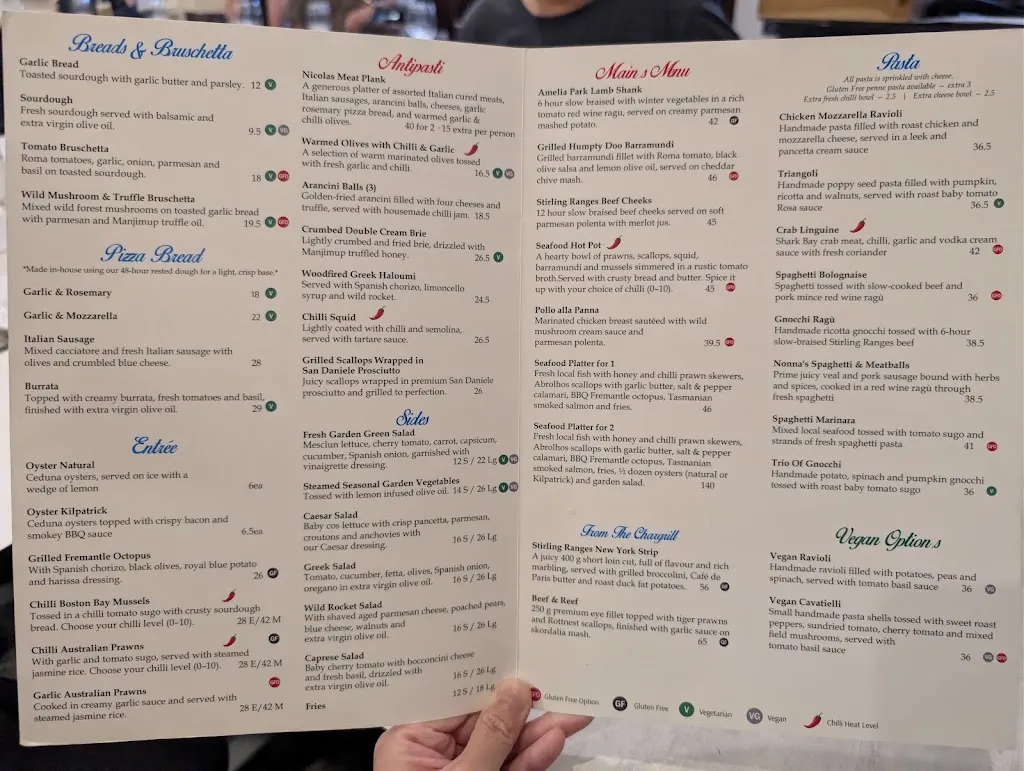 Breads & Bruschetta
Garlic Bread
Toasted sourdough with garlic butter and parsley. 12 V
Sourdough
Fresh sourdough served with balsamic and
extra virgin olive oil. 9.5 V VG
Tomato Bruschetta
Roma tomatoes, garlic, onion, parmesan and
basil on toasted sourdough. 18 V GFO
Wild Mushroom & Truffle Bruschetta
Mixed wild forest mushrooms on toasted garlic bread
with parmesan and Manjimup truffle oil. 19.5 V GFO
Pizza Bread
*Made in-house using our 48-hour rested dough for a light, crisp base.*
Garlic & Rosemary 18 V
Garlic & Mozzarella 22 V
Italian Sausage
Mixed cacciatore and fresh Italian sausage with
olives and crumbled blue cheese. 28
Burrata
Topped with creamy burrata, fresh tomatoes and basil,
finished with extra virgin olive oil. 29 V
Entrée
Oyster Natural
Ceduna oysters, served on ice with a
wedge of lemon 6ea
Oyster Kilpatrick
Ceduna oysters topped with crispy bacon and
smokey BBQ sauce 6.5ea
Grilled Fremantle Octopus
With Spanish chorizo, black olives, royal blue potato
and harissa dressing. 26 GF
Chilli Boston Bay Mussels
Tossed in a chilli tomato sugo with crusty sourdough
bread. Choose your chilli level (0–10). 28 E/42 M
Chilli Australian Prawns GF
With garlic and tomato sugo, served with steamed
jasmine rice. Choose your chilli level (0–10). 28 E/42 M
Garlic Australian Prawns GFO
Cooked in creamy garlic sauce and served with
steamed jasmine rice. 28 E/42 M
Antipasti
Nicolas Meat Plank
A generous platter of assorted Italian cured meats,
Italian sausages, arancini balls, cheeses, garlic
rosemary pizza bread, and warmed garlic &
chilli olives. 40 for 2 · 15 extra per person
Warmed Olives with Chilli & Garlic
A selection of warm marinated olives tossed
with fresh garlic and chilli. 16.5 V VG
Arancini Balls (3)
Golden-fried arancini filled with four cheeses and
truffle, served with housemade chilli jam. 18.5
Crumbed Double Cream Brie
Lightly crumbed and fried brie, drizzled with
Manjimup truffled honey. 26.5 V
Woodfired Greek Haloumi
Served with Spanish chorizo, limoncello
syrup and wild rocket. 24.5
Chilli Squid
Lightly coated with chilli and semolina,
served with tartare sauce. 26.5
Grilled Scallops Wrapped in
San Daniele Prosciutto
Juicy scallops wrapped in premium San Daniele
prosciutto and grilled to perfection. 26
Sides
Fresh Garden Green Salad
Mesclun lettuce, cherry tomato, carrot, capsicum,
cucumber, Spanish onion, garnished with
vinaigrette dressing. 12 S / 22 Lg V VG
Steamed Seasonal Garden Vegetables
Tossed with lemon infused olive oil. 14 S / 26 Lg V VG
Caesar Salad
Baby cos lettuce with crisp pancetta, parmesan,
croutons and anchovies with
our Caesar dressing. 16 S / 26 Lg
Greek Salad
Tomato, cucumber, fetta, olives, Spanish onion,
oregano in extra virgin olive oil. 16 S / 26 Lg
Wild Rocket Salad
With shaved aged parmesan cheese, poached pears,
blue cheese, walnuts and
extra virgin olive oil. 16 S / 26 Lg
Caprese Salad
Baby cherry tomato with bocconcini cheese
and fresh basil, drizzled with
extra virgin olive oil. 16 S / 26 Lg
Fries 12 S / 18 Lg
Main's Menu
Amelia Park Lamb Shank
6 hour slow braised with winter vegetables in a rich
tomato red wine ragu, served on creamy parmesan
mashed potato. 42 GF
Grilled Humpty Doo Barramundi
Grilled barramundi fillet with Roma tomato, black
olive salsa and lemon olive oil, served on cheddar
chive mash. 46 GFO
Stirling Ranges Beef Cheeks
12 hour slow braised beef cheeks served on soft
parmesan polenta with merlot jus. 45
Seafood Hot Pot
A hearty bowl of prawns, scallops, squid,
barramundi and mussels simmered in a rustic tomato
broth.Served with crusty bread and butter. Spice it
up with your choice of chilli (0–10). 45 GFO
Pollo alla Panna
Marinated chicken breast sautéed with wild
mushroom cream sauce and
parmesan polenta. 39.5 GFO
Seafood Platter for 1
Fresh local fish with honey and chilli prawn skewers,
Abrolhos scallops with garlic butter, salt & pepper
calamari, BBQ Fremantle octopus, Tasmanian
smoked salmon and fries. 46
Seafood Platter for 2
Fresh local fish with honey and chilli prawn skewers,
Abrolhos scallops with garlic butter, salt & pepper
calamari, BBQ Fremantle octopus, Tasmanian
smoked salmon, fries, ½ dozen oysters (natural or
Kilpatrick) and garden salad. 140
From The Chargrill
Stirling Ranges New York Strip
A juicy 400 g short loin cut, full of flavour and rich
marbling, served with grilled broccolini, Café de
Paris butter and roast duck fat potatoes. 56 GF
Beef & Reef
250 g premium eye fillet topped with tiger prawns
and Rottnest scallops, finished with garlic sauce on
skordalia mash. 65 GF
Pasta
All pasta is sprinkled with cheese.
Gluten Free penne pasta available – extra 3
Extra fresh chilli bowl – 2.5 | Extra cheese bowl – 2.5
Chicken Mozzarella Ravioli
Handmade pasta filled with roast chicken and
mozzarella cheese, served in a leek and
pancetta cream sauce 36.5
Triangoli
Handmade poppy seed pasta filled with pumpkin,
ricotta and walnuts, served with roast baby tomato
Rosa sauce 36.5 V
Crab Linguine
Shark Bay crab meat, chilli, garlic and vodka cream
sauce with fresh coriander 42 GFO
Spaghetti Bolognaise
Spaghetti tossed with slow-cooked beef and
pork mince red wine ragù 36 GFO
Gnocchi Ragù
Handmade ricotta gnocchi tossed with 6-hour
slow-braised Stirling Ranges beef 38.5
Nonna's Spaghetti & Meatballs
Prime juicy veal and pork sausage bound with herbs
and spices, cooked in a red wine ragù through
fresh spaghetti 38.5
Spaghetti Marinara
Mixed local seafood tossed with tomato sugo and
strands of fresh spaghetti pasta 41 GFO
Trio Of Gnocchi
Handmade potato, spinach and pumpkin gnocchi
tossed with roast baby tomato sugo 36 V
Vegan Options
Vegan Ravioli
Handmade ravioli filled with potatoes, peas and
spinach, served with tomato basil sauce 36 VG
Vegan Cavatielli
Small handmade pasta shells tossed with sweet roast
peppers, sundried tomato, cherry tomato and mixed
field mushrooms, served with
tomato basil sauce 36 VG GFO
GFO Gluten Free Option GF Gluten Free V Vegetarian VG Vegan Chilli Heat Level